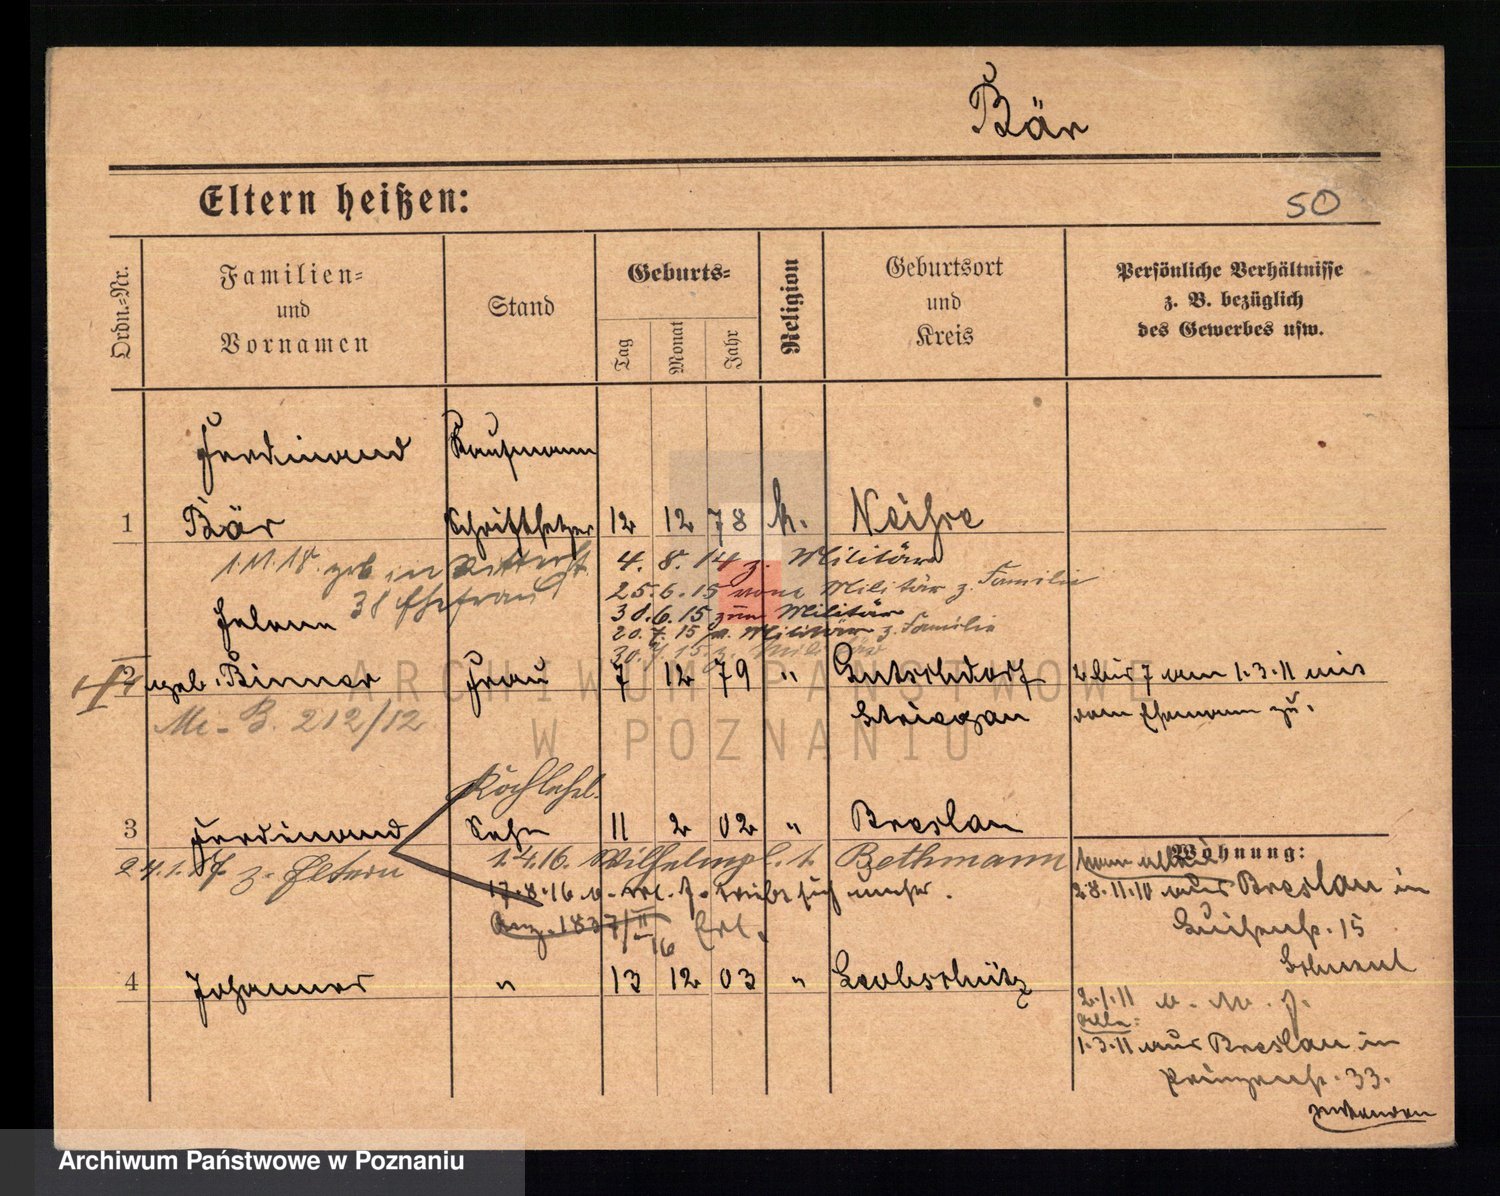 Bär
Eltern heißen:
50
Ordn.-Nr.
Familien-
und
Vornamen
Stand
Geburts-
Tag
Monat
Jahr
Religion
Geburtsort
und
Kreis
Persönliche Verhältnisse
z. B. bezüglich
des Gewerbes usw.
Ferdinand Kaufmann
1 Bär Schriftsetzer 12 12 78 k. Neisse
1.11.18. geb in
4. 8. 14 z. Militär
38 Ehefrau
25.6.15 vom Militär z. Familie
30.6.15 zum Militär
Helene
20.7.15 v. Militär z. Familie
30.7.15 z. Militär
2 geb. Binner Frau 7 12 79 " Gutschdorf
Striegau
2 bis 7 am 1.3.11 mit
dem Ehemann zu.
212/12
3 Ferdinand Sohn 11 2 02 " Breslau
24.1.17 z. Eltern
1.4.16. Wilhelmpl. 1. Bethmann
17.8.16
1837/II 16 Erl.
4 Johannes " 13 12 03 " Leobschütz
Wohnung:
Mann allein
28.11.10 aus Breslau in
15
2.1.11
alle:
1.3.11 aus Breslau in
Prinzenstr. 33.
zuwenden
ARCHIWUM PAŃSTWOWE
W POZNANIU
Archiwum Państwowe w Poznaniu